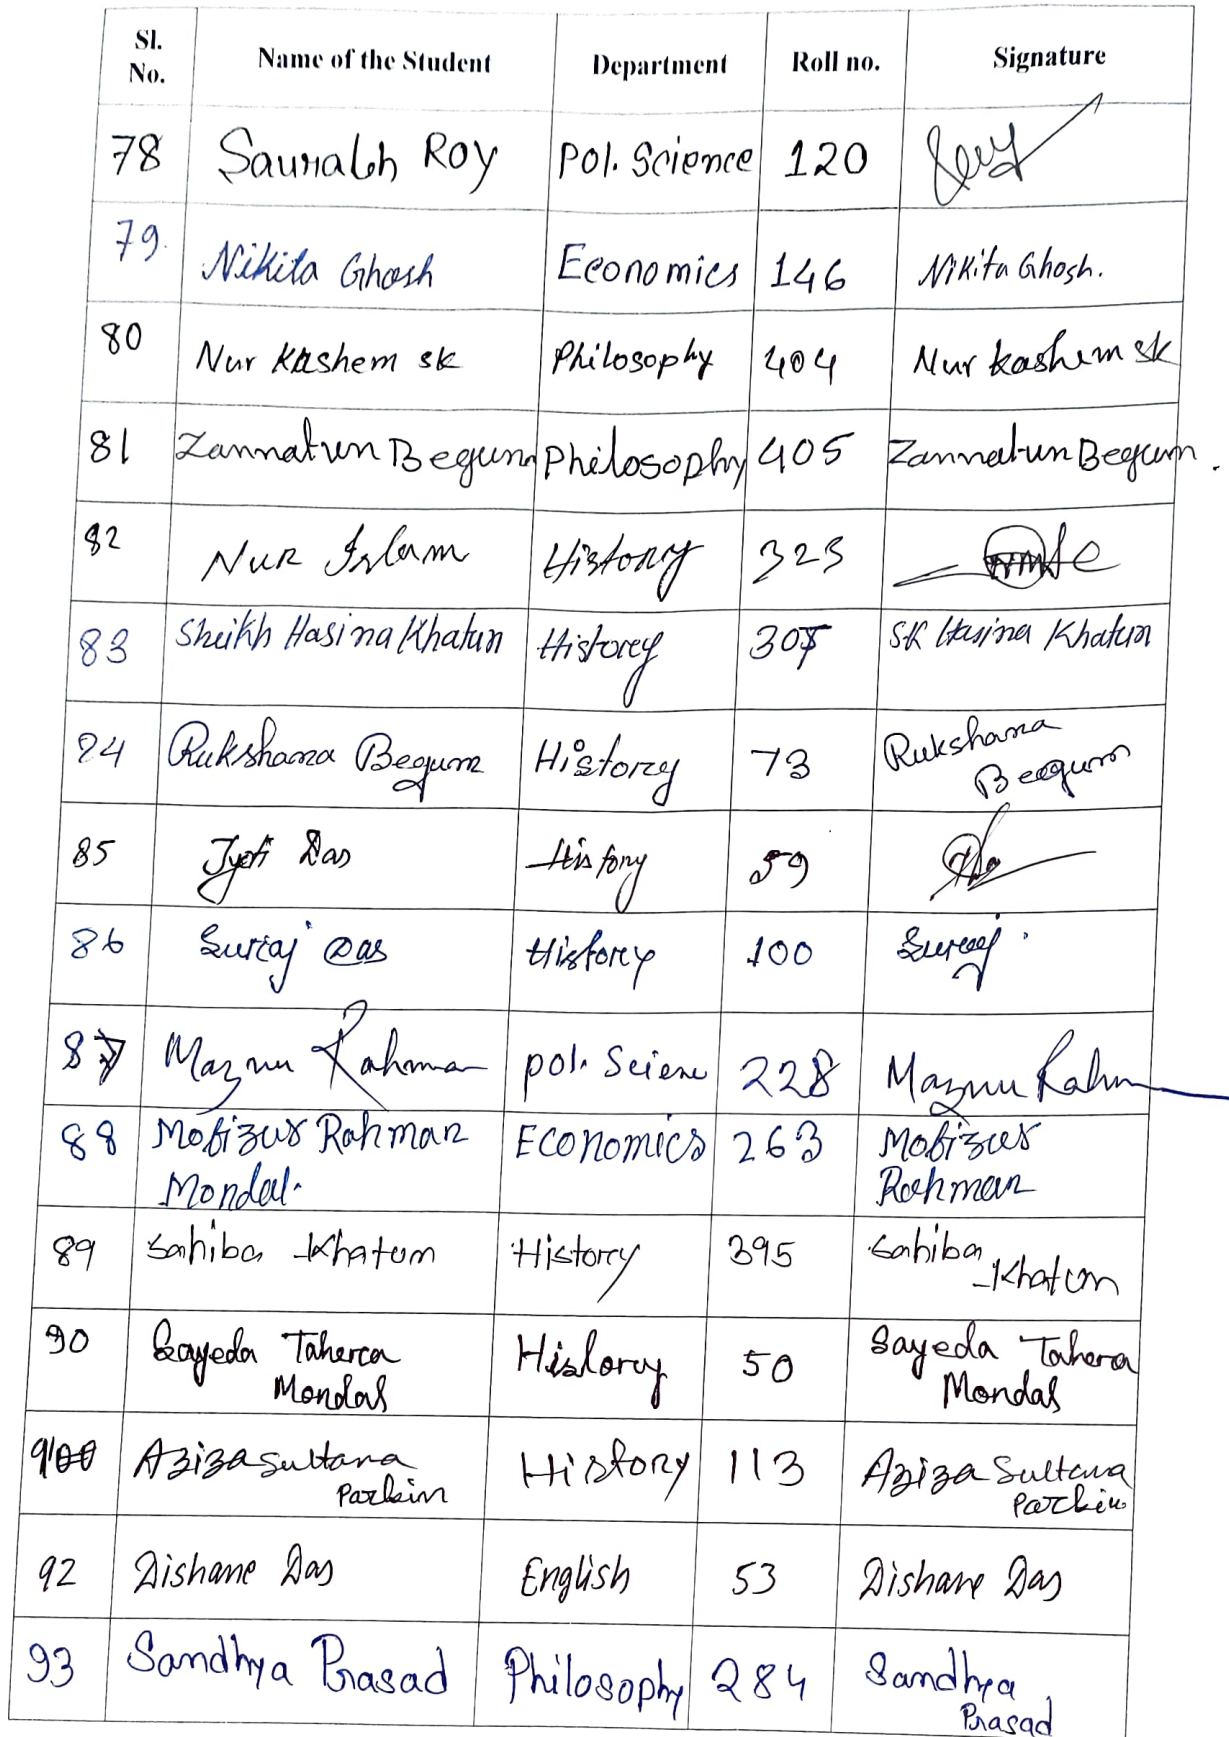 Sl. No. Name of the Student Department Roll no. Signature
78 Saurabh Roy Pol. Science 120
79. Nikita Ghosh Economics 146 Nikita Ghosh.
80 Nur Kashem sk Philosophy 404 Nur kashem sk
81 Zannatun Begum Philosophy 405 Zannatun Begum.
82 Nur Islam History 323
83 Sheikh Hasina Khatun History 307 SK Hasina Khatun
84 Rukshana Begum History 73 Rukshana
Begum
85 Jyoti Das History 59
86 Suraj Das History 100 Suraj
87 Maznu Rahman pol. Sciene 228 Maznu Rahm
88 Mofizur Rahman Economics 263 Mofizur
Mondal. Rahman
89 Sahiba Khatun History 395 Sahiba
Khatun
90 Sayeda Tahera History 50 Sayeda Tahera
Mondal Mondal
91 Aziza Sultana History 113 Aziza Sultana
Parbin Parbin
92 Dishane Das English 53 Dishane Das
93 Sandhya Prasad Philosophy 284 Sandhya
Prasad